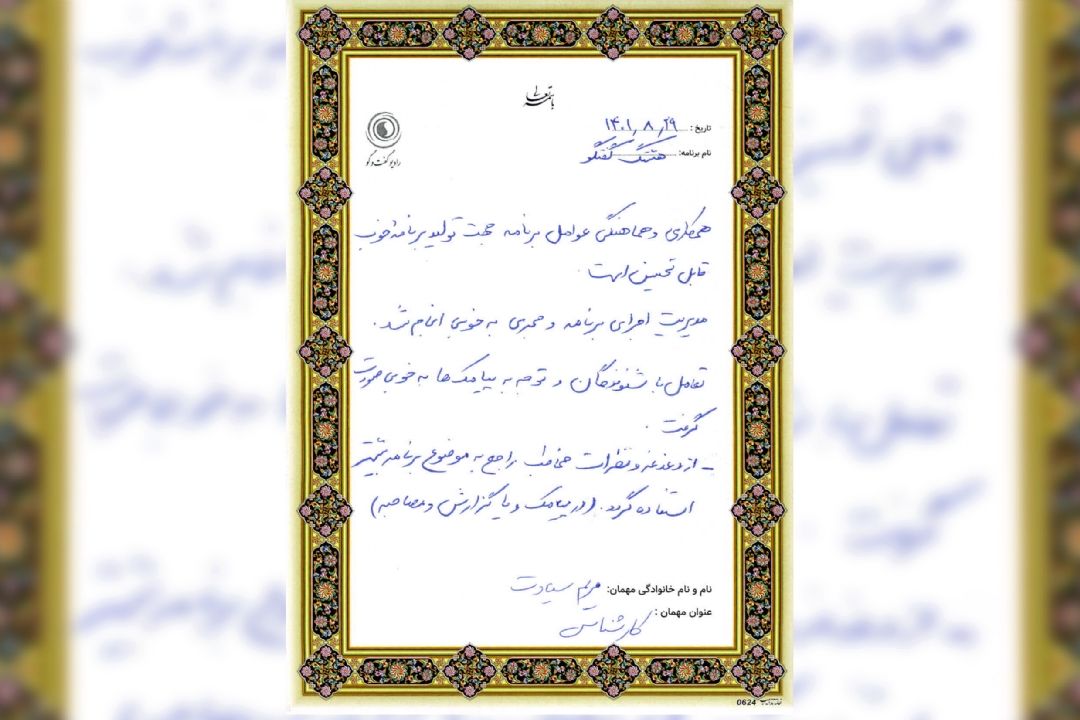 باسمه تعالی
تاریخ: ۱۴۰۱/۸/۲۹
نام برنامه: هشتگ گفتگو
رادیو گفت‌وگو
همکاری و هماهنگی عوامل برنامه جهت تولید برنامه خوب
قابل تحسین است.
مدیریت اجرای برنامه و مجری به خوبی انجام شد.
تعامل با شنوندگان و توجه به پیامک‌ها به خوبی صورت
گرفت.
- از دغدغه و نظرات مخاطب راجع به موضوع برنامه بیشتر
استفاده گردد. (در پیامک و یا گزارش و مصاحبه)
نام و نام خانوادگی مهمان: مریم سیادت
عنوان مهمان: کارشناس
0624